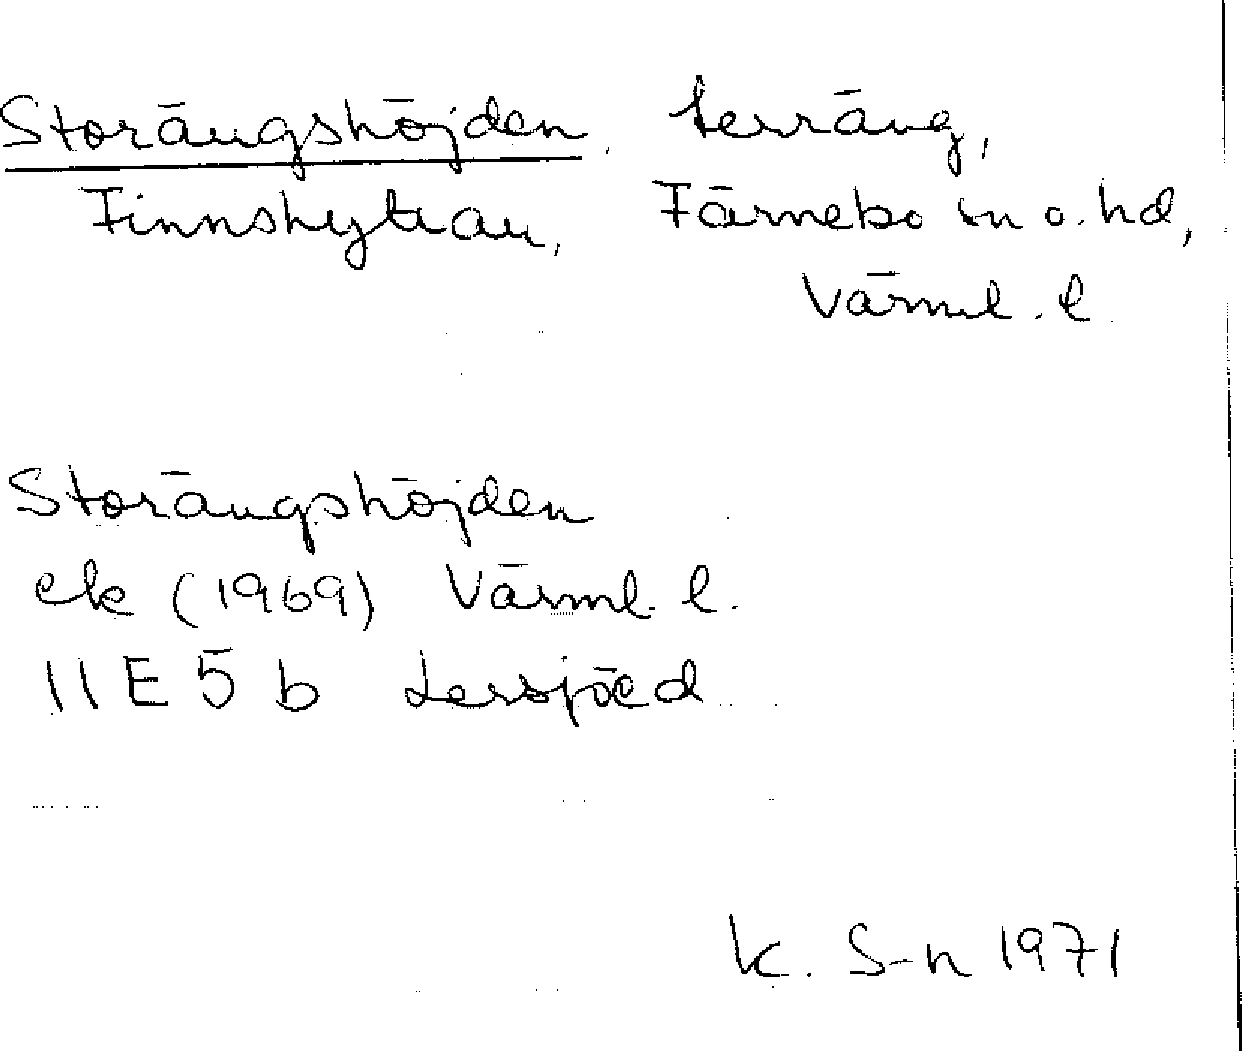 Storängshöjden, terräng,
Finnshyttan, Färnebo sn o. hd,
Värml. l.
Storängshöjden
ek (1969) Värml. l.
11 E 5 b Lersjöed
K. S-n 1971